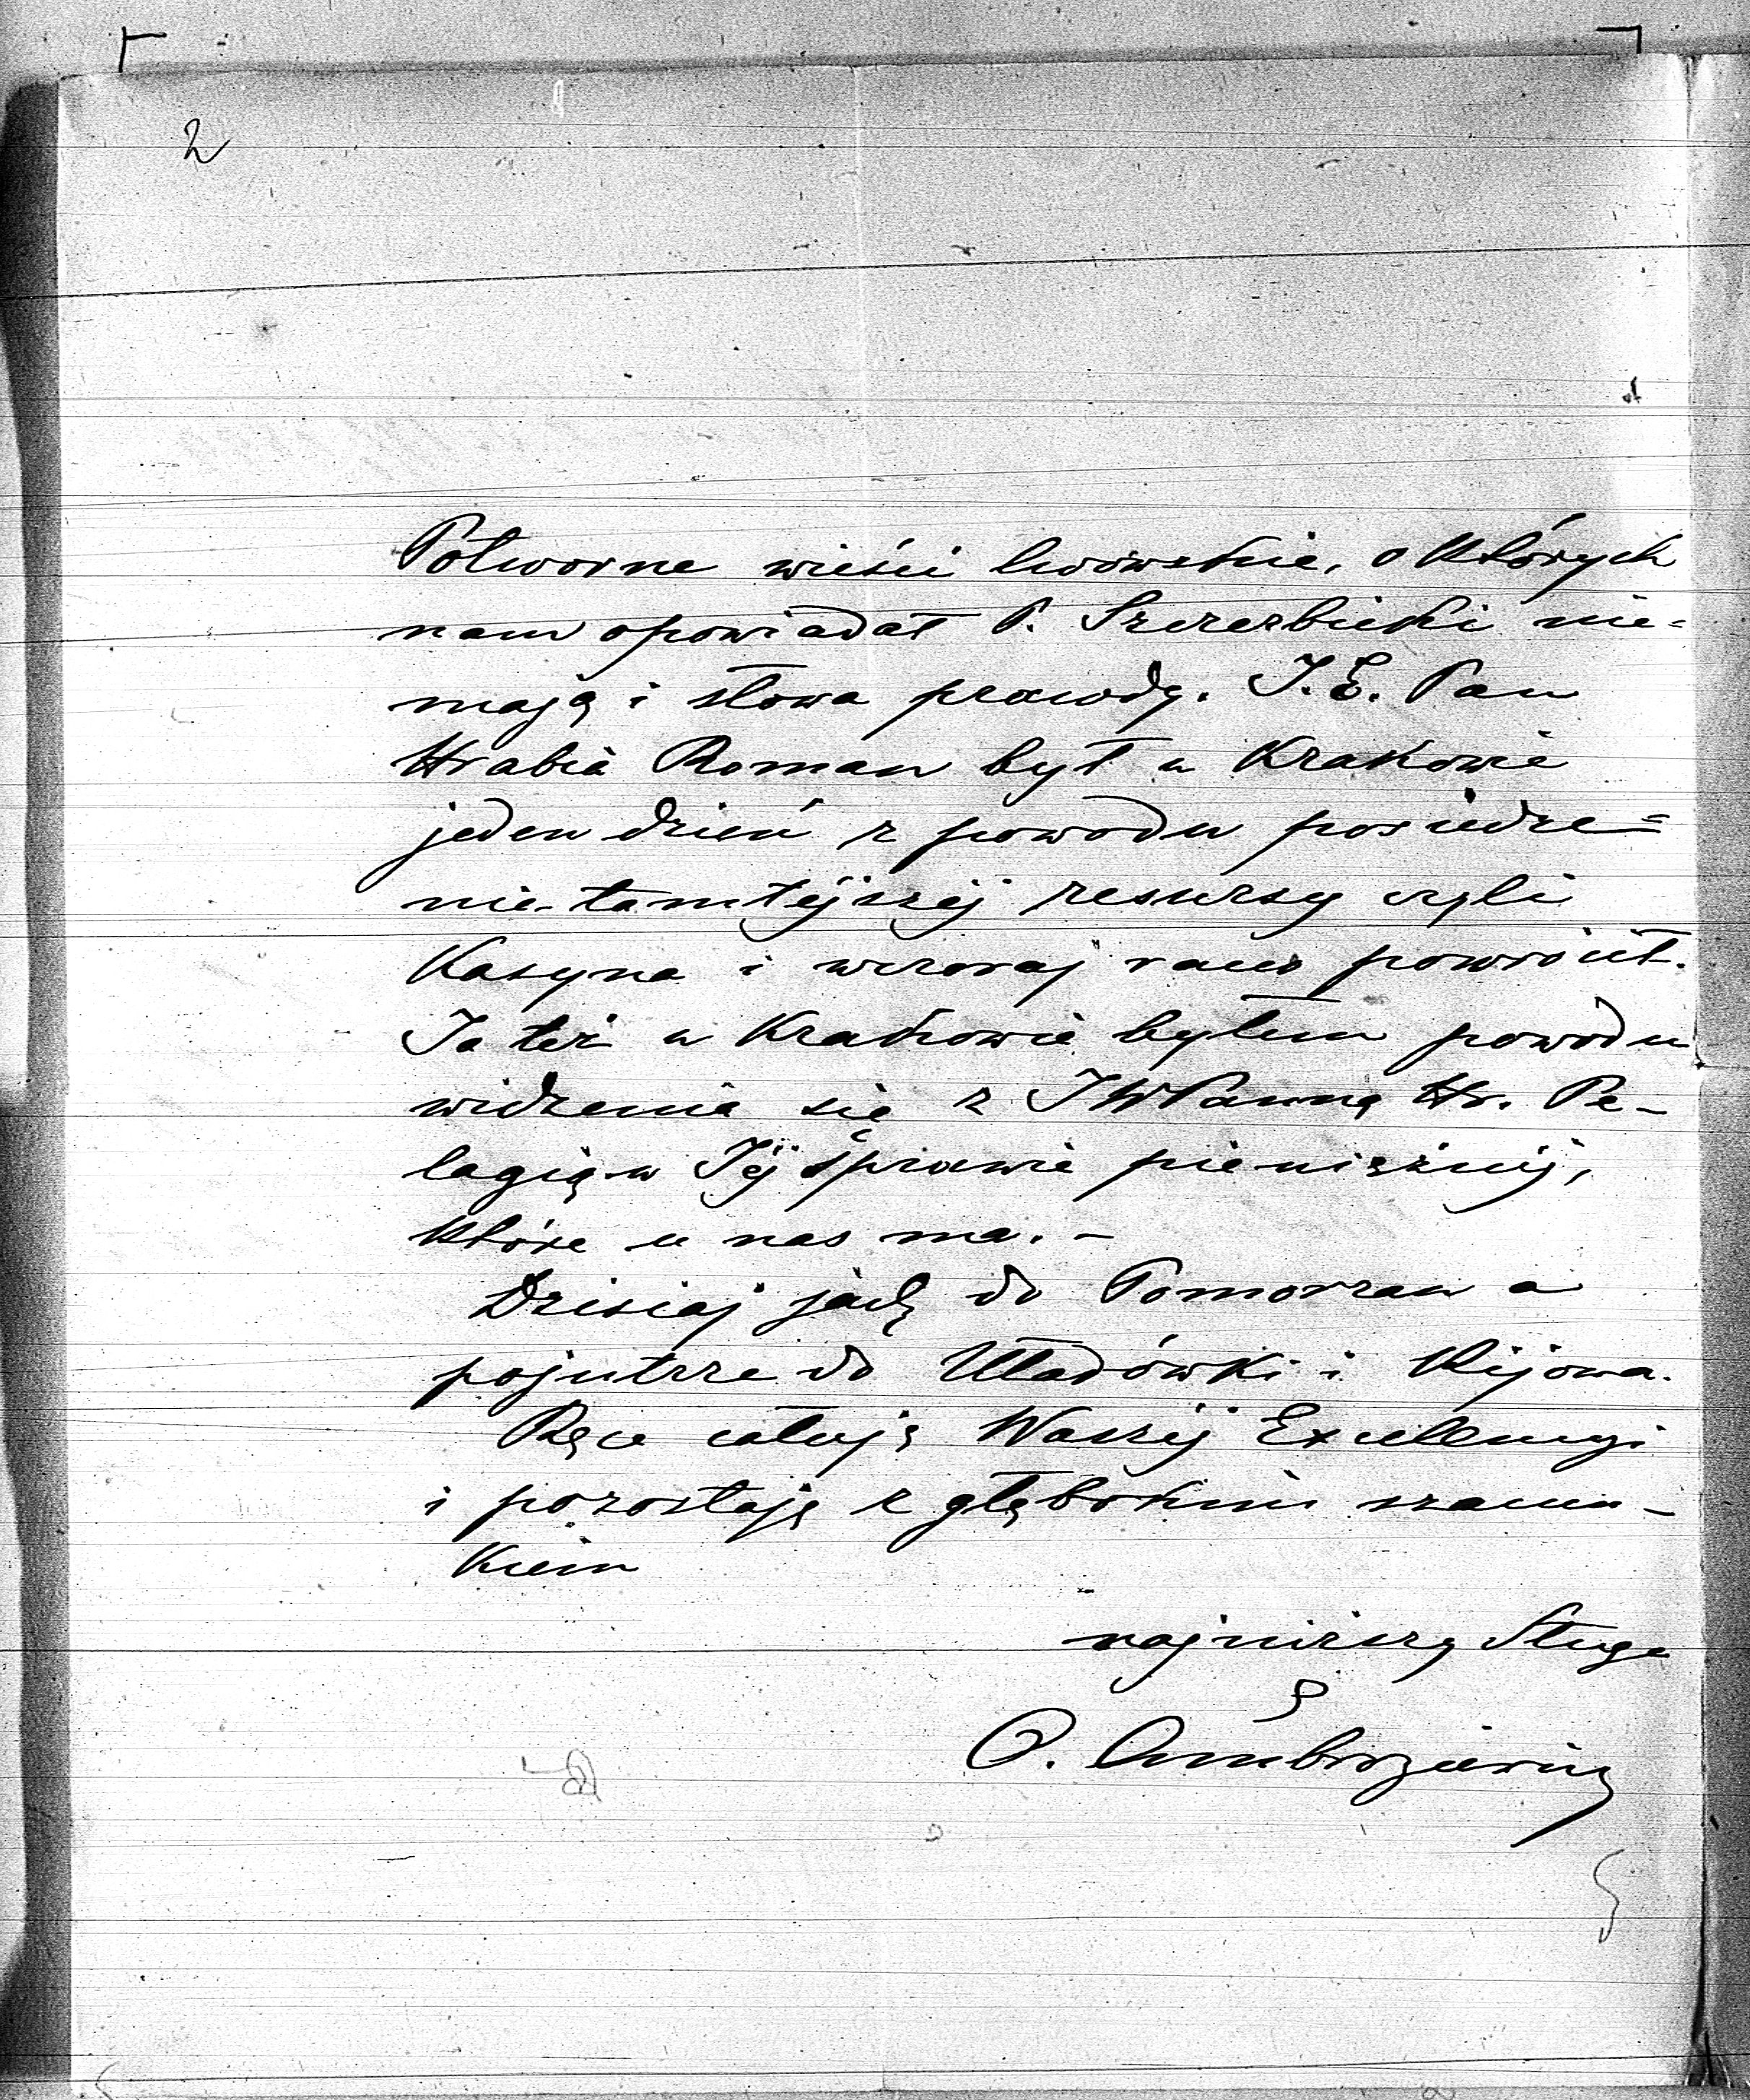 2
Potworne wieści lwowskie, o których
nam opowiadał P. Szczerbicki nie-
mają i słowa prawdy. J. E. Pan
Hrabia Roman był w Krakowie
jeden dzień z powodu posiedze=
nia tamtéjszéj resursy czyli
Kasyna i wczoraj rano powrócił.
Ja też w Krakowie byłem powodu
widzenia się z JWPanną Hr. Pe-
lagią w Jéj sprawie pieniężnéj,
które u nas ma. -
Dzisiaj jadę do Pomorzan a
pojutrze do Uładówki i Kijowa.
Ręce całuję Waszéj Excellencyi
i pozostaję z głębokim szacun-
kiem
najniższy Sługa